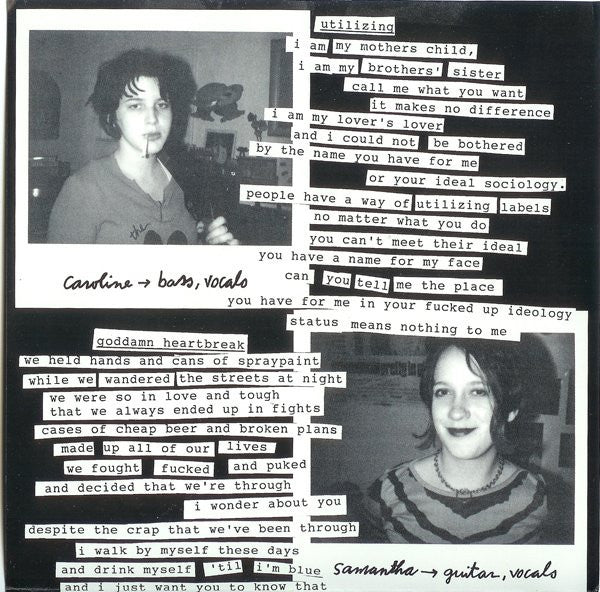 utilizing
i am my mothers child,
i am my brothers' sister
call me what you want
it makes no difference
i am my lover's lover
and i could not be bothered
by the name you have for me
or your ideal sociology.
people have a way of utilizing labels
no matter what you do
you can't meet their ideal
you have a name for my face
can you tell me the place
you have for me in your fucked up ideology
status means nothing to me
the
caroline → bass, vocals
goddamn heartbreak
we held hands and cans of spraypaint
while we wandered the streets at night
we were so in love and tough
that we always ended up in fights
cases of cheap beer and broken plans
made up all of our lives
we fought fucked and puked
and decided that we're through
i wonder about you
despite the crap that we've been through
i walk by myself these days
and drink myself 'til i'm blue
and i just want you to know that
samantha → guitar, vocals